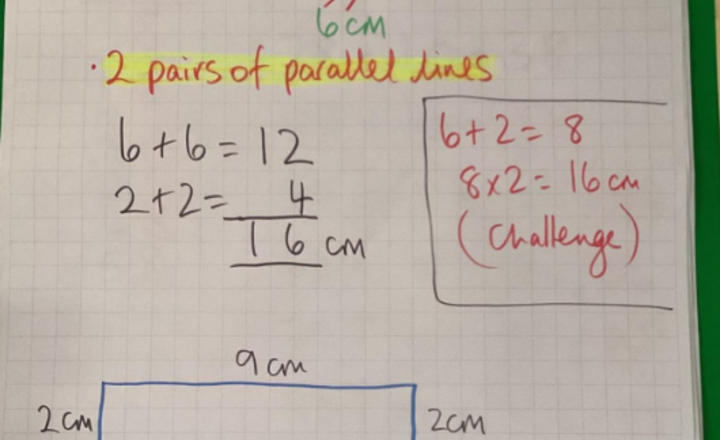 6cm
· 2 pairs of parallel lines
6+6=12
2+2= 4
16 cm
6+2= 8
8x2= 16 cm
(Challenge)
9cm
2cm
2cm